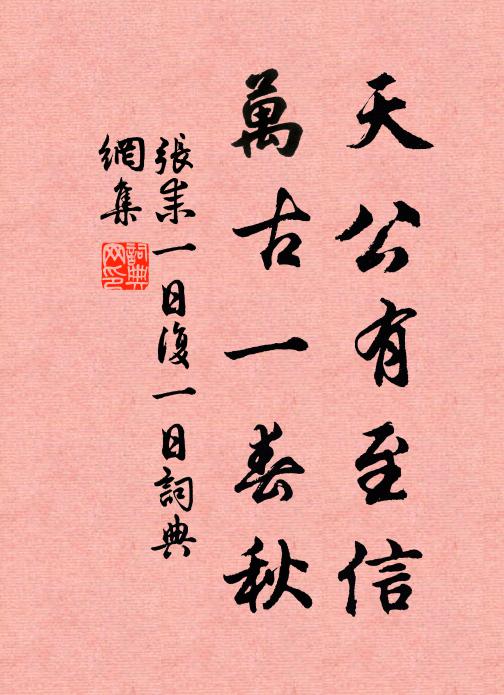 天公有至信
萬古一春秋
張耒一日復一日詞典
網集
詞典
网印